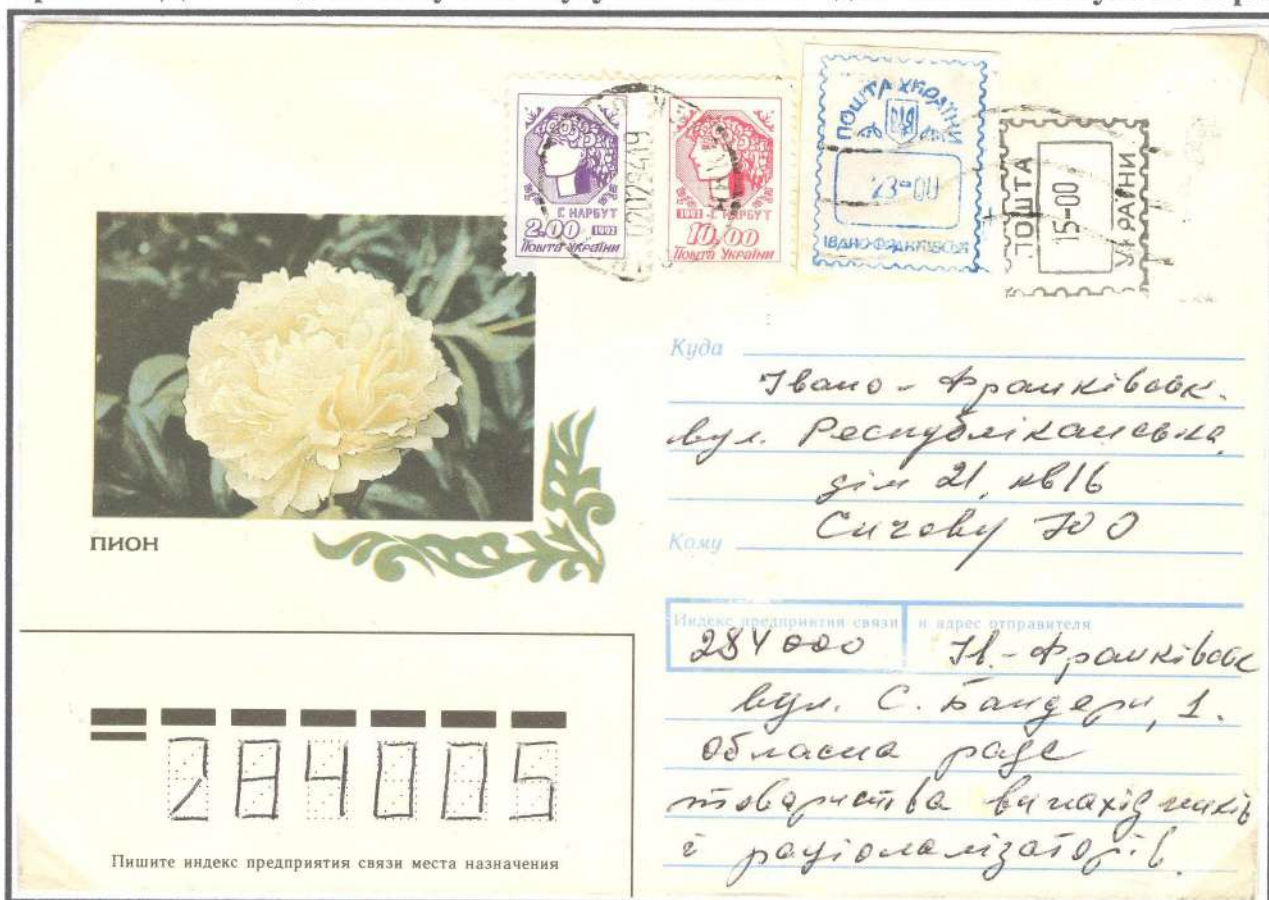 Г. НАРБУТ
2.00 1992
Пошта України
1992 Г. НАРБУТ
10.00
Пошта України
ПОШТА УКРАЇНИ
23-00
ІВАНО-ФРАНКІВСЬК
ПОШТА
15-00
УКРАЇНИ
ПИОН
Куда
Івано-Франківськ.
вул. Республіканська
дім 21, кв 16
Кому Сичову Ю О
Индекс предприятия связи и адрес отправителя
284000 Ів.-Франківськ
вул. С. Бандери, 1.
Обласна рада
товариства винахідників
і раціоналізаторів.
284005
Пишите индекс предприятия связи места назначения